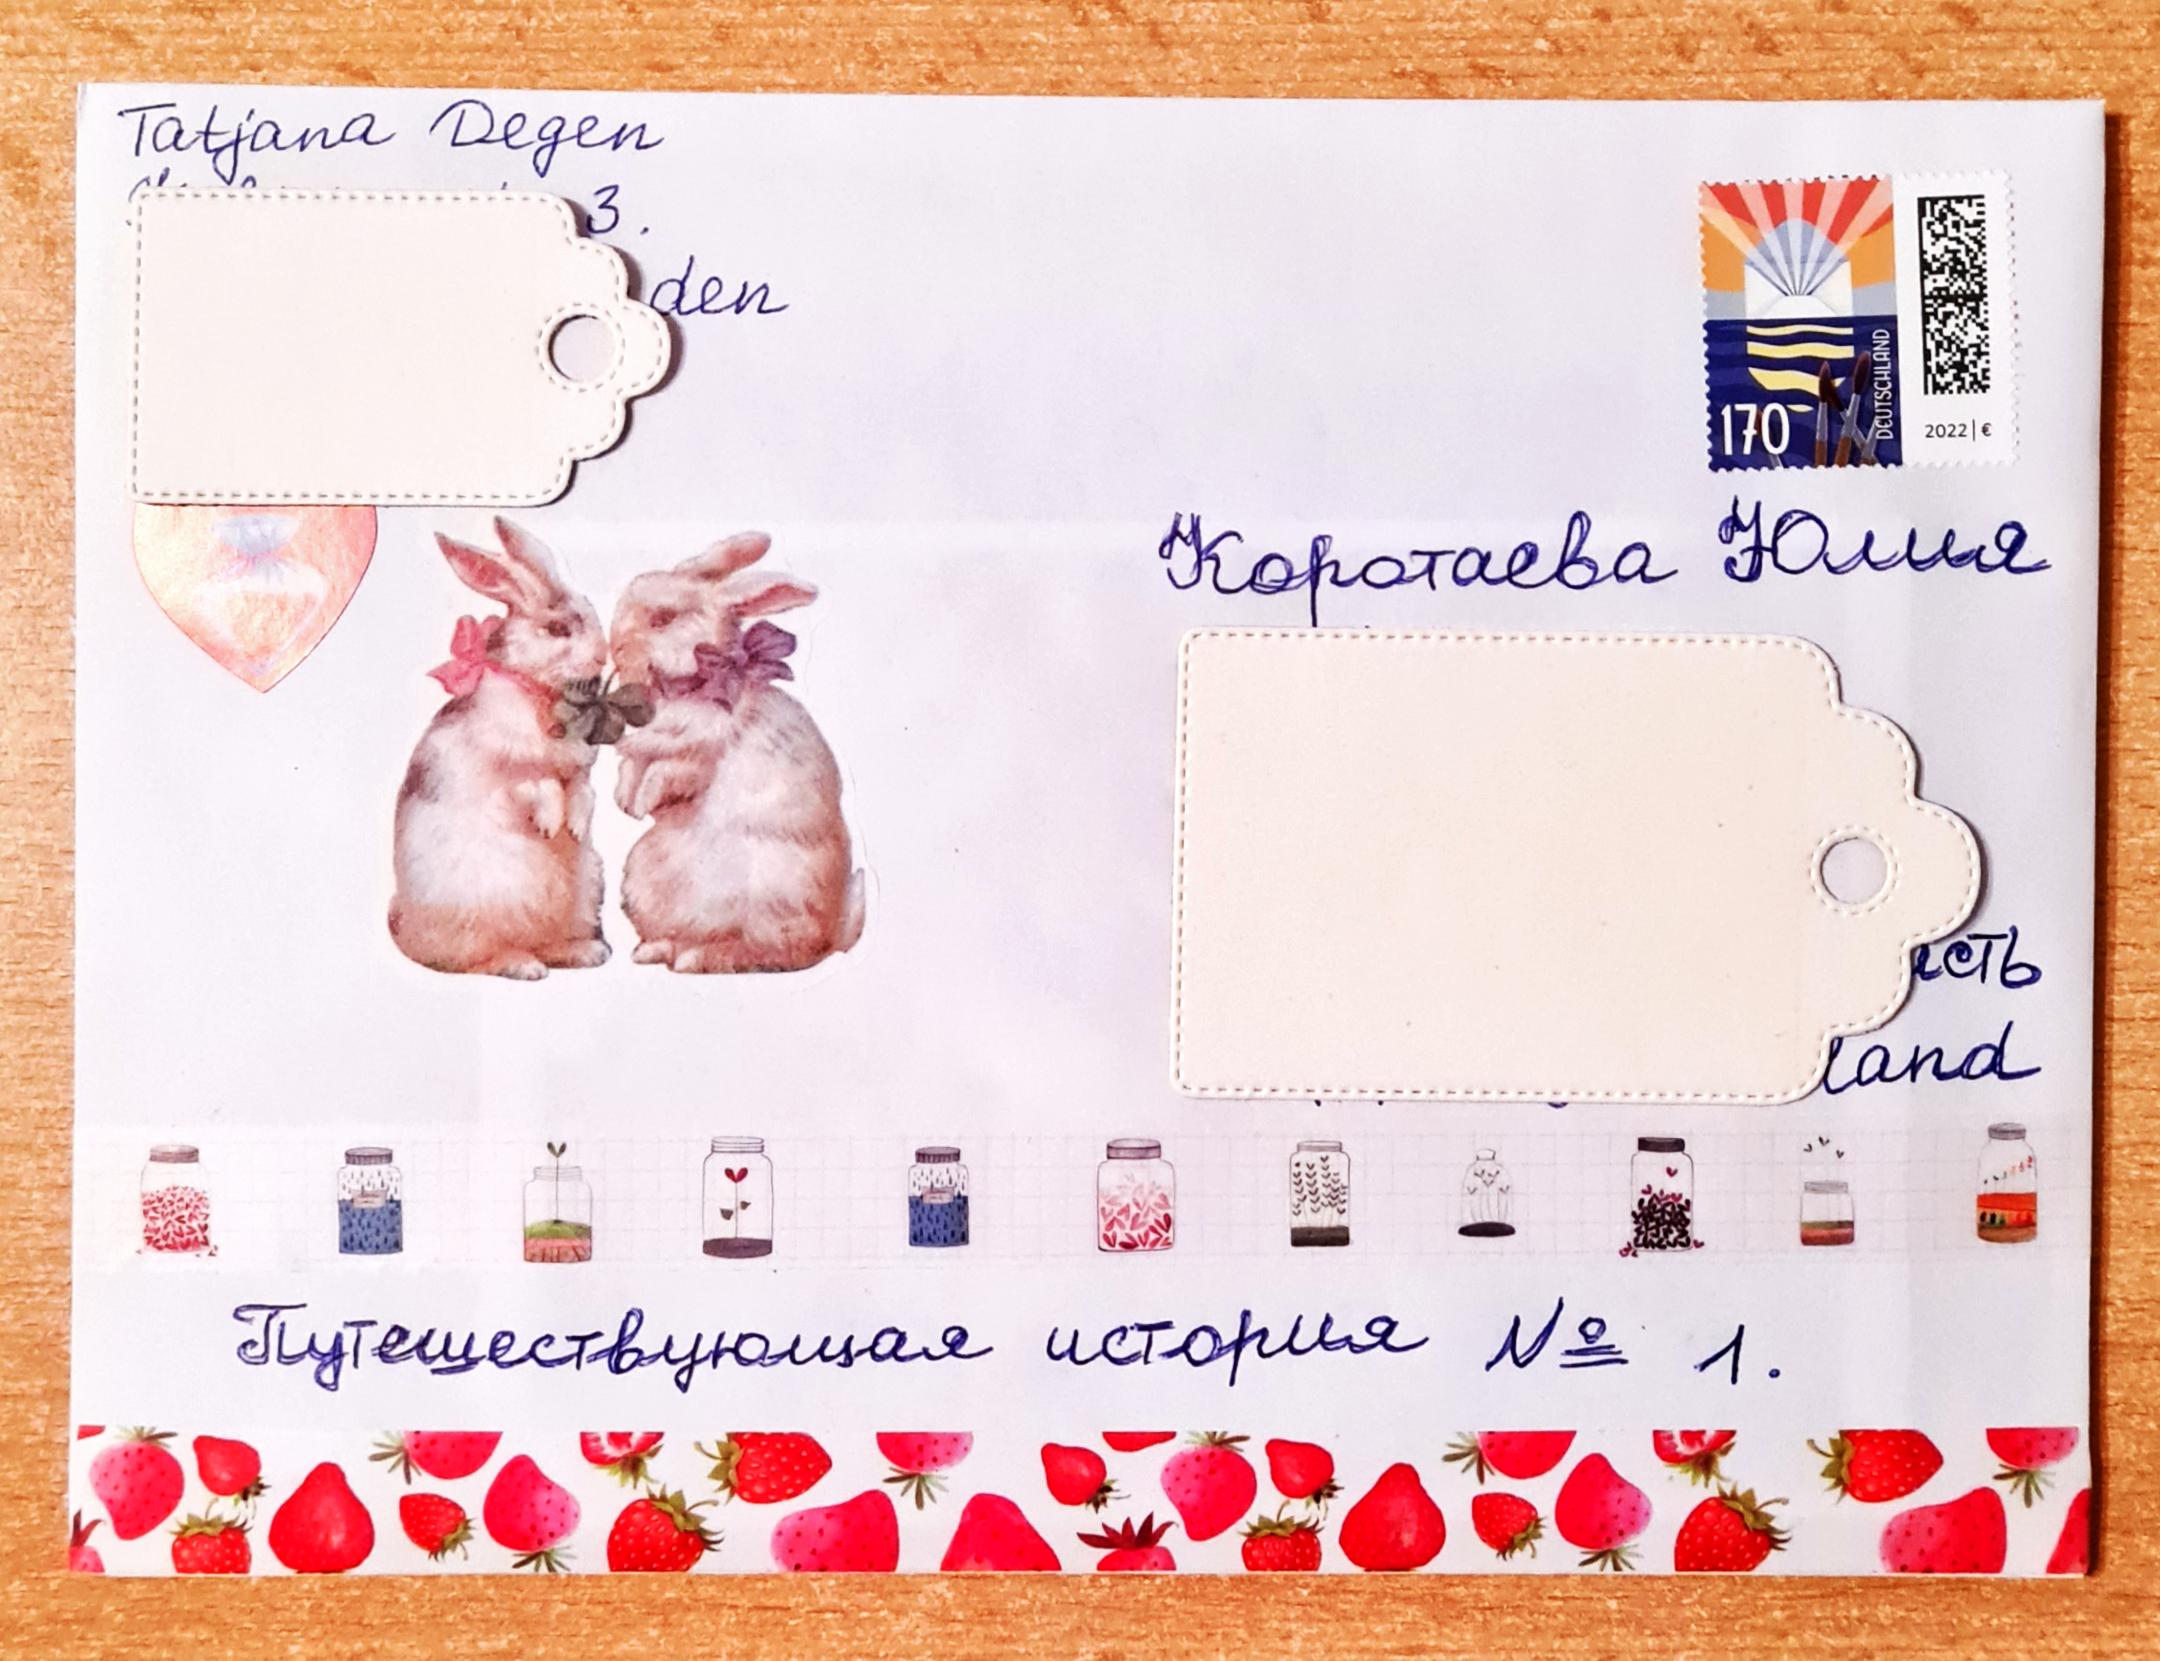 Tatjana Degen
3.
den
170
DEUTSCHLAND
2022 | €
Коротаева Юлия
сть
land
Путешествующая история № 1.